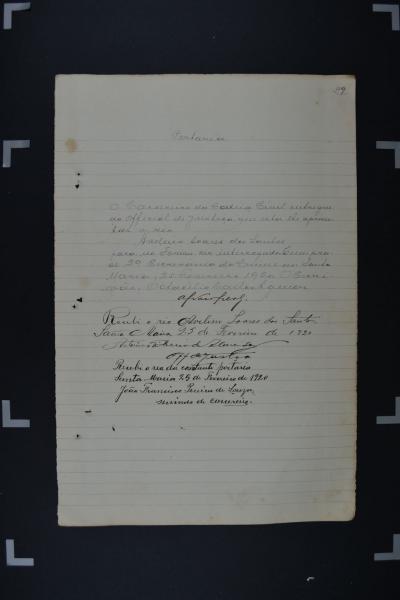 29
Portaria
O Carcereiro da Cadeia Civil entregue
ao Official de Justiça, que esta lhe apresen
tar o réo
Avelino Soares dos Santos
para, no Forum, ser interrogado. Cumpra.
2º do Crime em Santa
Maria, 25 Fevereiro 1920. O Escri
vão,
Recebi o réo Avelino Soares dos Santos
Santa Maria 25 de Fevereiro de 1920
Antonio de Almeida
Off de Justiça
Recebi o reo da constante portaria
Santa Maria 25 de Fevereiro de 1920
João Francisco Pereira de Souza,
servindo de carcereiro.